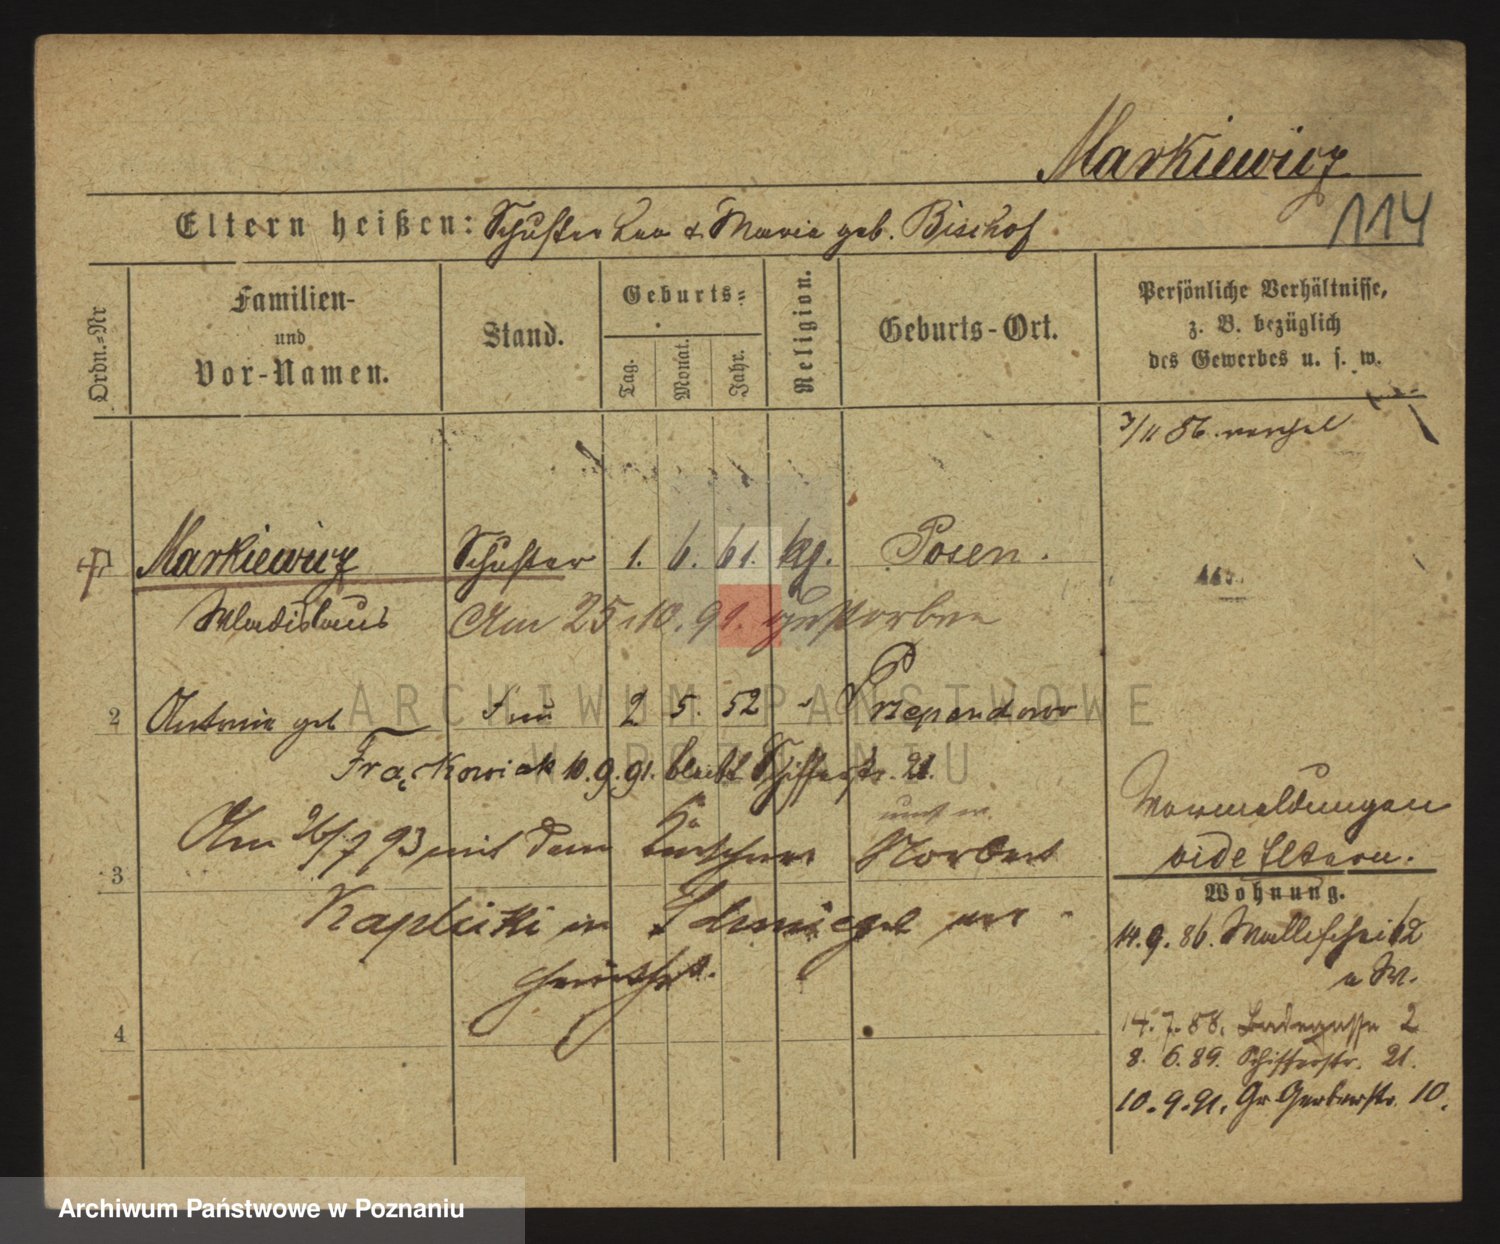 Markiewicz
114
Eltern heißen: Schuster Leo & Marie geb. Bischof
Ordn.-Nr
Familien-
und
Vor-Namen.
Stand.
Geburts-
Tag.
Monat.
Jahr.
Religion.
Geburts-Ort.
Persönliche Verhältnisse,
z. B. bezüglich
des Gewerbes u. s. w.
3/11 86
Markiewicz Schuster 1. 6. 61. kg. Posen.
Wladislaus Am 25.10.91. gestorben
2 Antonie geb Frau 2 5. 52 Przependowo
Frąckowiak 10.9.91. bleibt Schifferstr. 21.
Am 26/7 93 mit dem Kürschner Norbert
3
Kaplicki in Schmiegel ver-
heirathet.
4
Vormeldungen
vide Eltern.
Wohnung.
14.9.86. Wallischei 62
a W.
14.7.88. Badegasse 2
8. 6. 89. Schifferstr. 21.
10.9.91. Gr Gerberstr. 10.
ARCHIWUM PAŃSTWOWE
W POZNANIU
Archiwum Państwowe w Poznaniu